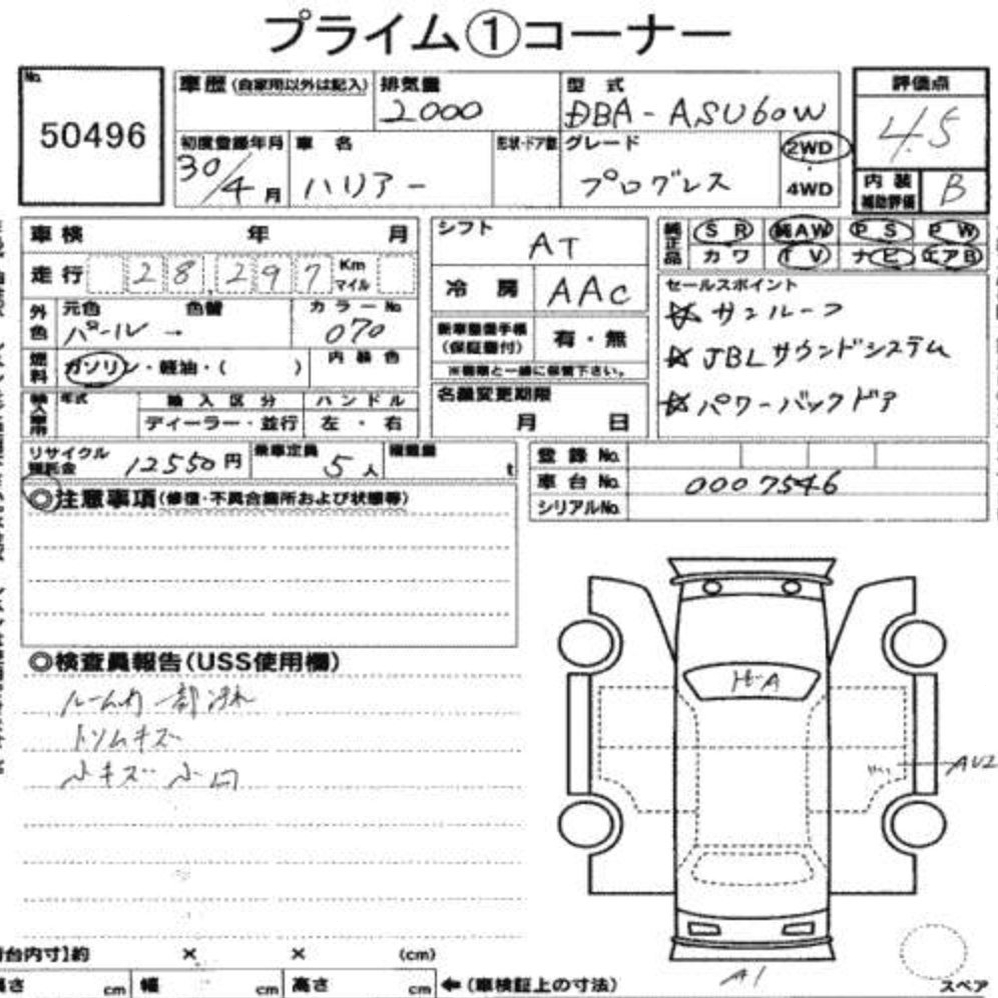 プライム①コーナー
No.
50496
車歴(自家用以外は記入)
排気量
2000
型式
DBA-ASU60W
評価点
4.5
初度登録年月
30/4月
車名
ハリアー
形状・ドア数
グレード
プログレス
2WD
・
4WD
内装
補助評価
B
車検 年 月
走行 28,297 Km マイル
シフト
AT
純正品
SR 純AW PS PW
カワ TV ナビ エアB
外色
元色 色替 カラーNo.
パール → 070
冷房
AAC
セールスポイント
☆サンルーフ
☆JBLサウンドシステム
☆パワーバックドア
燃料
ガソリン・軽油・( )
内装色
新車整備手帳
(保証書付)
有・無
※書類と一緒に保管下さい。
輸入車用
年式
輸入区分
ディーラー・並行
ハンドル
左・右
名義変更期限
月 日
リサイクル
預託金
12550円
乗車定員
5人
積載量
t
登録No.
車台No. 0007546
シリアルNo.
◎注意事項(修復・不具合箇所および状態等)
◎検査員報告(USS使用欄)
ルーム内一部汚れ
トリムキズ
小キズ 小凹
A
AU2
A1
台内寸]約 × × (cm)
長さ cm 幅 cm 高さ cm ←(車検証上の寸法)
スペア